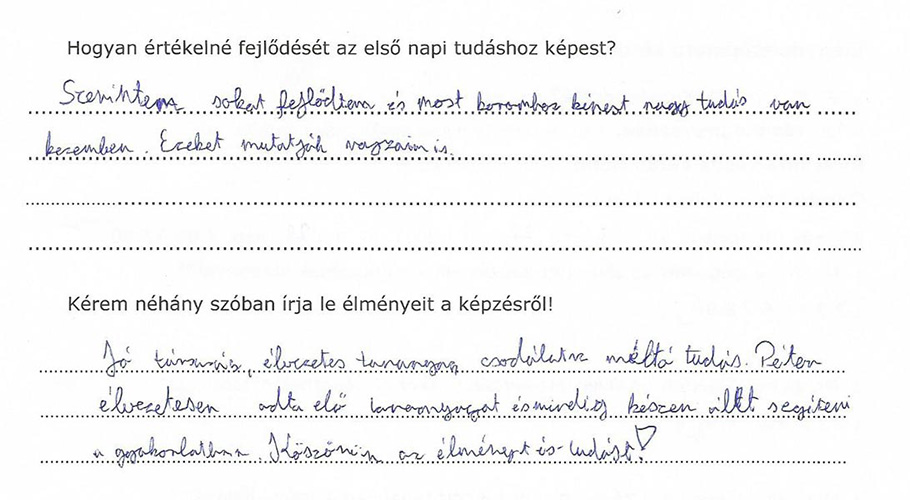 Hogyan értékelné fejlődését az első napi tudáshoz képest?
Szerintem sokat fejlődtem és most koromhoz képest nagy tudás van
kezemben. Ezeket mutatják is.
Kérem néhány szóban írja le élményeit a képzésről!
Jó társaság, élvezetes tananyag, csodálatra méltó tudás. Péter
élvezetesen adta elő tananyagát és mindig készen állt segíteni
a gyakorlatban. Köszönöm az élményt és tudást!